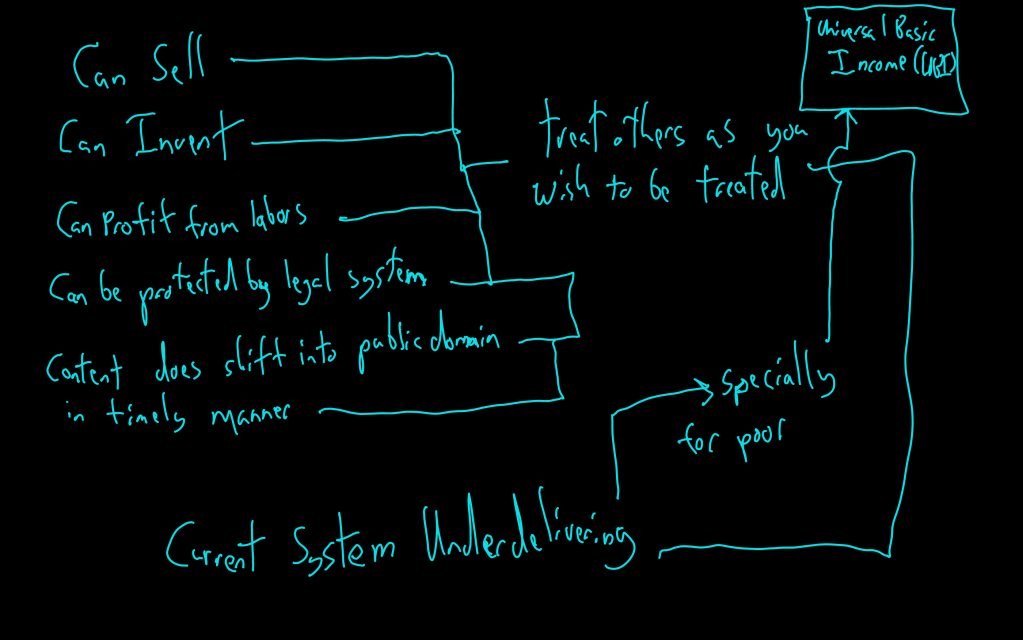 Can Sell
Can Invent
Can Profit from labors
Can be protected by legal system
Content does shift into public domain
in timely manner
treat others as you
wish to be treated
Universal Basic
Income (UBI)
specially
for poor
Current System Underdelivering